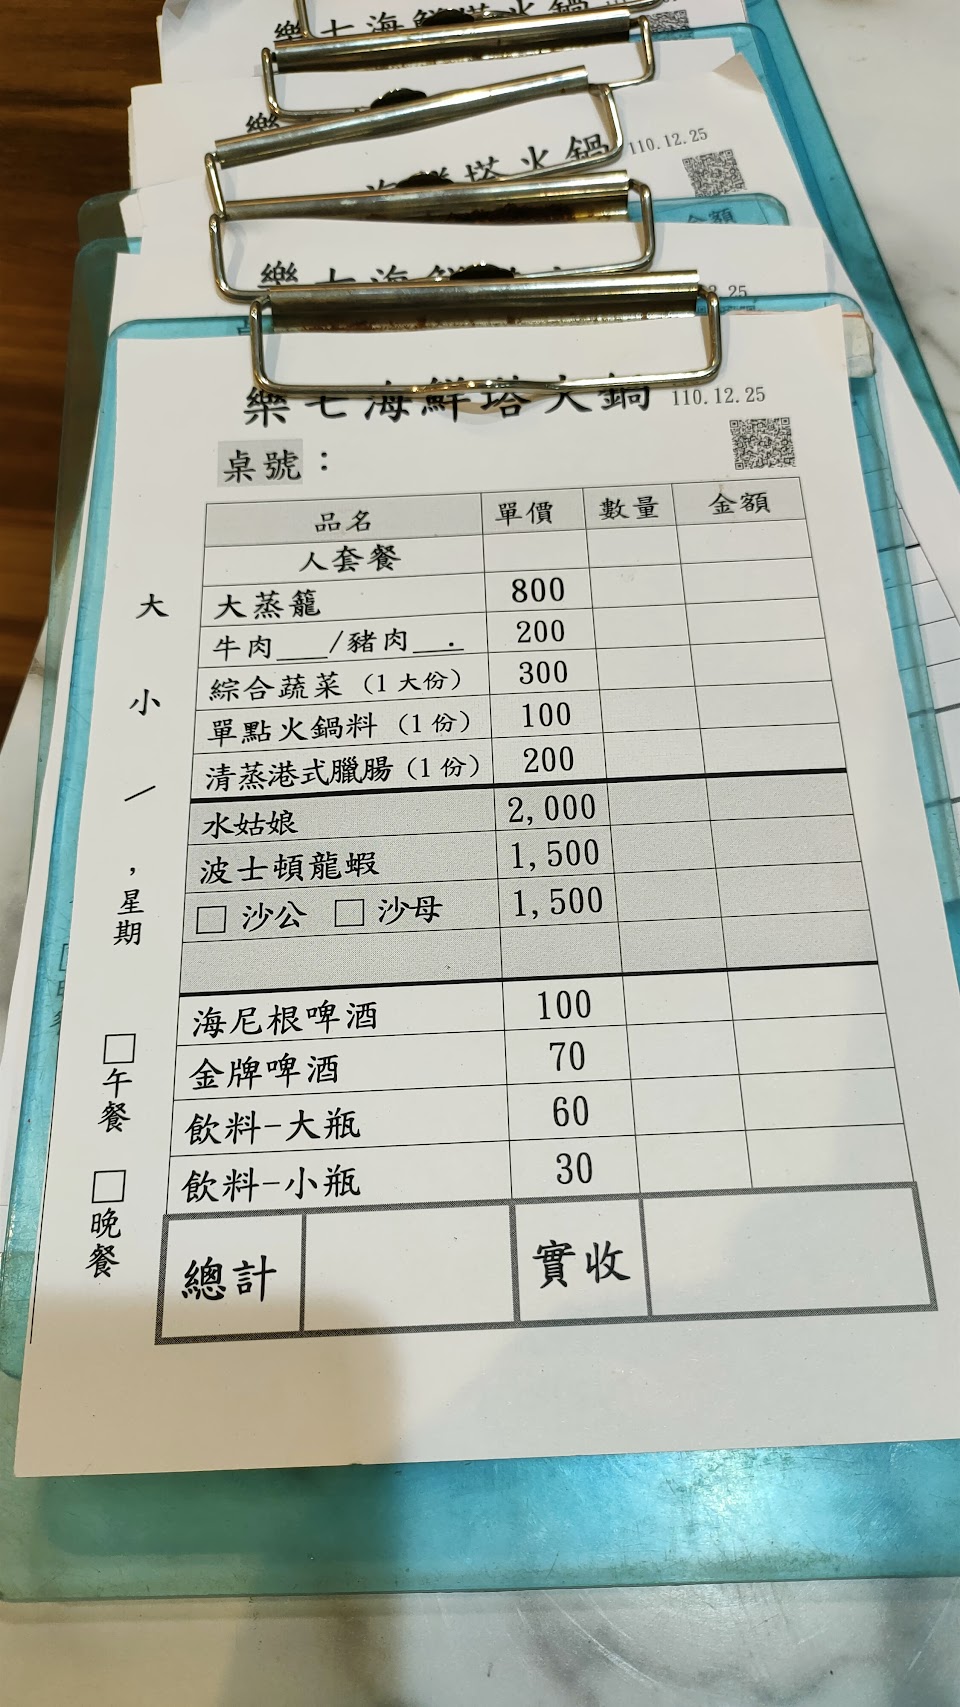 樂七海鮮塔火鍋 110.12.25
桌號：
品名 單價 數量 金額
人套餐
大蒸籠 800
牛肉___/豬肉___. 200
綜合蔬菜（1大份） 300
單點火鍋料（1份） 100
清蒸港式臘腸（1份） 200
水姑娘 2,000
波士頓龍蝦 1,500
□ 沙公 □ 沙母 1,500
海尼根啤酒 100
金牌啤酒 70
飲料-大瓶 60
飲料-小瓶 30
總計 實收
大
小
/
，星期
□午餐
□晚餐
海鮮塔火鍋 110.12.25
金額
樂七海鮮